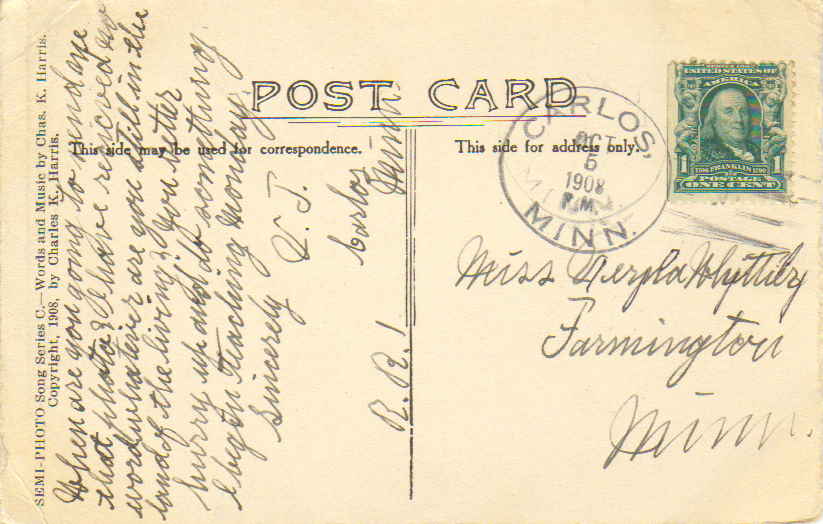 SEMI-PHOTO Song Series C.—Words and Music by Chas. K. Harris.
Copyright, 1908, by Charles K. Harris.
POST CARD
This side may be used for correspondence.
This side for address only.
When are you going to send me
that photo? I have received no
word whatever are you still in the
land of the living? You better
hurry up and do something.
I begin teaching Monday.
Sincerely
V. J.
R. R. 1
Carlos
Minn.
CARLOS,
OCT
5
1908
P.M.
MINN.
UNITED STATES OF
AMERICA
1
1
1706 FRANKLIN 1790
POSTAGE
ONE CENT
Miss Whittier
Farmington
Minn.